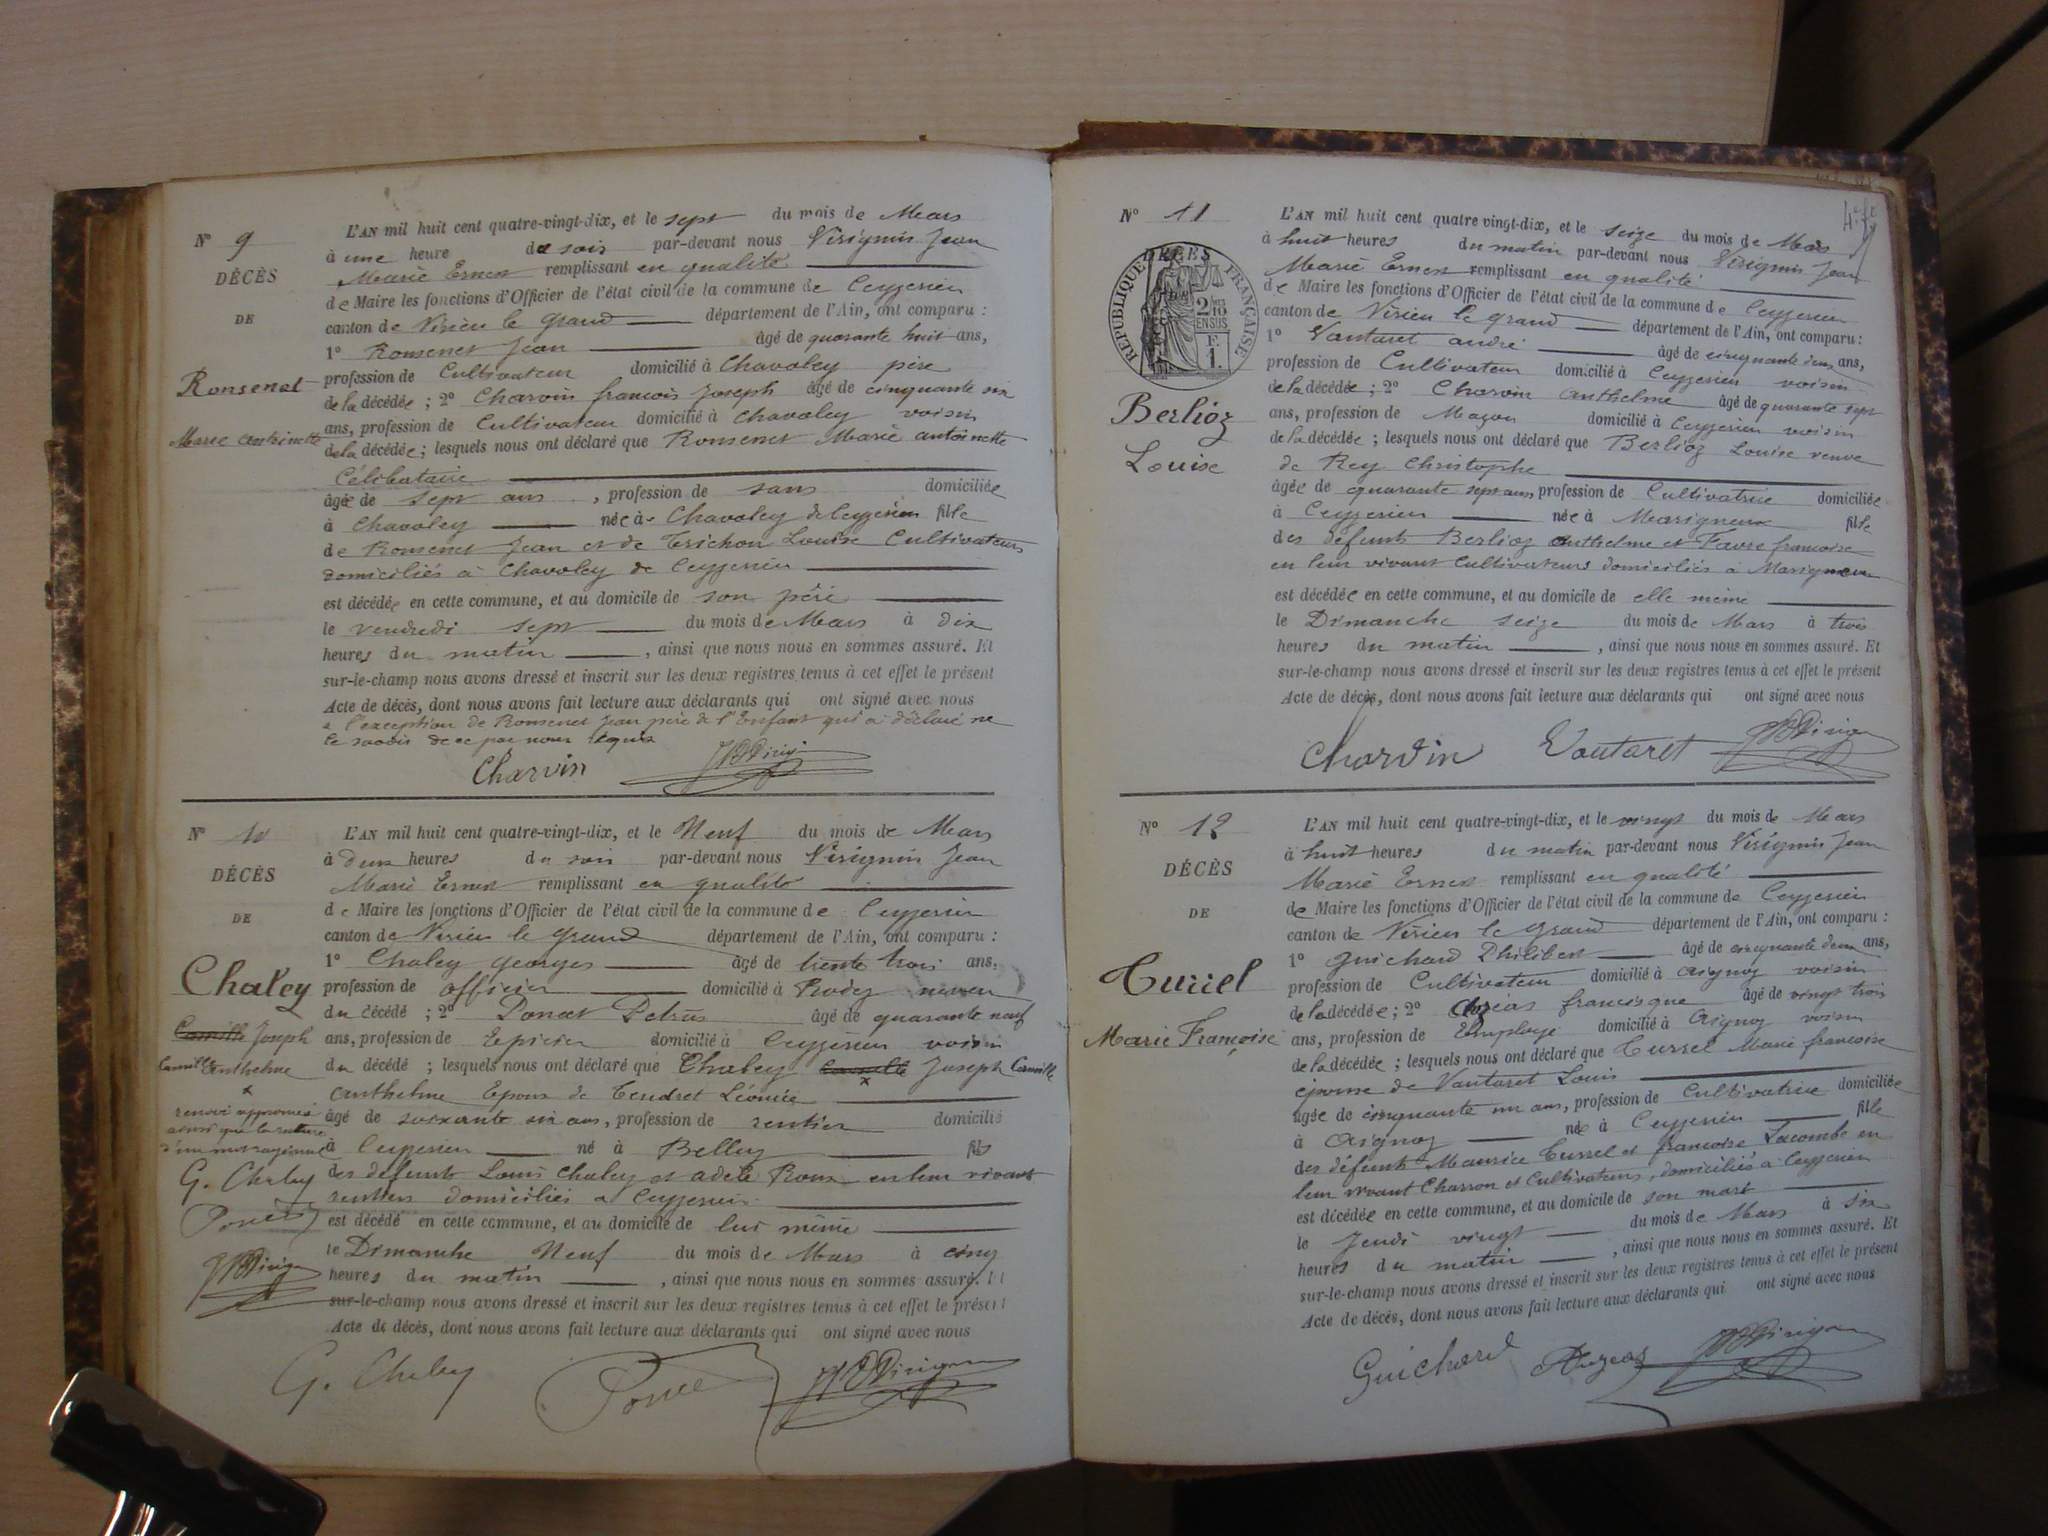 N° 9
DÉCÈS
DE
Ronsenet
Marie antoinette
L'AN mil huit cent quatre-vingt-dix, et le sept du mois de Mars
à une heure du soir par-devant nous Virignin Jean
Marie Ernest remplissant en qualité
de Maire les fonctions d'Officier de l'état civil de la commune de Ceyzerieu
canton de Virieu le grand département de l'Ain, ont comparu :
1° Ronsenet Jean âgé de quarante huit ans,
profession de Cultivateur domicilié à Chavoley père
de la décédée ; 2° Charvin francois Joseph âgé de cinquante six
ans, profession de Cultivateur domicilié à Chavoley voisin
de la décédée ; lesquels nous ont déclaré que Ronsenet Marie antoinette
Célibataire
âgée de sept ans, profession de sans domiciliée
à Chavoley née à Chavoley de Ceyzerieu fille
de Ronsenet Jean et de Trichon Louise Cultivateurs
domiciliés à Chavoley de Ceyzerieu
est décédée en cette commune, et au domicile de son père
le vendredi sept du mois de Mars à dix
heures du matin, ainsi que nous nous en sommes assuré. Et
sur-le-champ nous avons dressé et inscrit sur les deux registres tenus à cet effet le présent
Acte de décès, dont nous avons fait lecture aux déclarants qui ont signé avec nous
a l'exception de Ronsenet Jean père de l'Enfant qui a déclaré ne
le savoir de ce par nous requis
Charvin
N° 10
DÉCÈS
DE
Chaley
Camille Joseph
Camille anthelme
x
renvoi approuvé
ainsi que la rature
d'un mot rayé nul
G. Chaley
Poncet
L'AN mil huit cent quatre-vingt-dix, et le Neuf du mois de Mars
à deux heures du soir par-devant nous Virignin Jean
Marie Ernest remplissant en qualité
de Maire les fonctions d'Officier de l'état civil de la commune de Ceyzerieu
canton de Virieu le grand département de l'Ain, ont comparu :
1° Chaley georges âgé de trente trois ans,
profession de officier domicilié à Rodez neveu
du décédé ; 2° Poncet Petrus âgé de quarante neuf
ans, profession de Epicier domicilié à Ceyzerieu voisin
du décédé ; lesquels nous ont déclaré que Chaley Camille x Joseph Camille
anthelme Epoux de Tendret Léonie
âgé de soixante six ans, profession de rentier domicilié
à Ceyzerieu né à Belley fils
des défunts Louis Chaley et adèle Roux en leur vivant
rentiers domiciliés a Ceyzerieu
est décédé en cette commune, et au domicile de lui même
le Dimanche Neuf du mois de Mars à cinq
heures du matin, ainsi que nous nous en sommes assuré. Et
sur-le-champ nous avons dressé et inscrit sur les deux registres tenus à cet effet le présent
Acte de décès, dont nous avons fait lecture aux déclarants qui ont signé avec nous
G. Chaley Poncet
N° 11
RÉPUBLIQUE FRANÇAISE
2/10 EN SUS
F. 1.
Berlioz
Louise
L'AN mil huit cent quatre vingt-dix, et le seize du mois de Mars
à huit heures du matin par-devant nous Virignin Jean
Marie Ernest remplissant en qualité
de Maire les fonctions d'Officier de l'état civil de la commune de Ceyzerieu
canton de Virieu le grand département de l'Ain, ont comparu :
1° Vautaret andré âgé de cinquante deux ans,
profession de Cultivateur domicilié à Ceyzerieu voisin
de la décédée ; 2° Charvin anthelme âgé de quarante sept
ans, profession de Maçon domicilié à Ceyzerieu voisin
de la décédée ; lesquels nous ont déclaré que Berlioz Louise veuve
de Rey Christophe
âgée de quarante sept ans profession de Cultivatrice domiciliée
à Ceyzerieu née à Marignieux fille
des défunts Berlioz anthelme et Favre francoise
en leur vivant Cultivateurs domiciliés à Marignieux
est décédée en cette commune, et au domicile de elle même
le Dimanche seize du mois de Mars à trois
heures du matin, ainsi que nous nous en sommes assuré. Et
sur-le-champ nous avons dressé et inscrit sur les deux registres tenus à cet effet le présent
Acte de décès, dont nous avons fait lecture aux déclarants qui ont signé avec nous
Charvin Vautaret
N° 12
DÉCÈS
DE
Turrel
Marie Françoise
L'AN mil huit cent quatre-vingt-dix, et le vingt du mois de Mars
à huit heures du matin par-devant nous Virignin Jean
Marie Ernest remplissant en qualité
de Maire les fonctions d'Officier de l'état civil de la commune de Ceyzerieu
canton de Virieu le grand département de l'Ain, ont comparu :
1° Guichard Philibert âgé de cinquante deux ans,
profession de Cultivateur domicilié à Aignoz voisin
de la décédée ; 2° francisque âgé de vingt trois
ans, profession de Employé domicilié à Aignoz voisin
de la décédée ; lesquels nous ont déclaré que Turrel Marie francoise
épouse de Vautaret Louis
âgée de cinquante un ans, profession de Cultivatrice domiciliée
à Aignoz née à Ceyzerieu fille
des défunts Maurice Turrel et francoise Lacombe en
leur vivant Charron et Cultivateurs, domiciliés à Ceyzerieu
est décédée en cette commune, et au domicile de son mari
le Jeudi vingt du mois de Mars à six
heures du matin, ainsi que nous nous en sommes assuré. Et
sur-le-champ nous avons dressé et inscrit sur les deux registres tenus à cet effet le présent
Acte de décès, dont nous avons fait lecture aux déclarants qui ont signé avec nous
Guichard